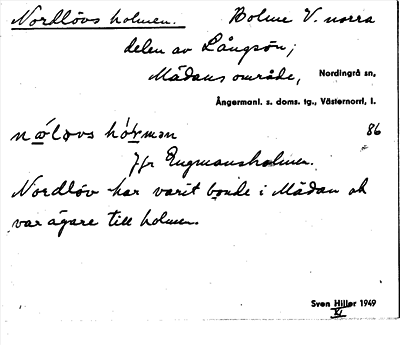 Nordlövs holmen. Holme V. norra
delen av Långsön;
Mädans område, Nordingrå sn,
Ångermanl. s. doms. tg., Västernorrl. l.
holmən 86
Jfr Engmansholmen.
Nordlöv har varit bonde i Mädan ok
var ägare till holmen.
Sven Hiller 1949
XI